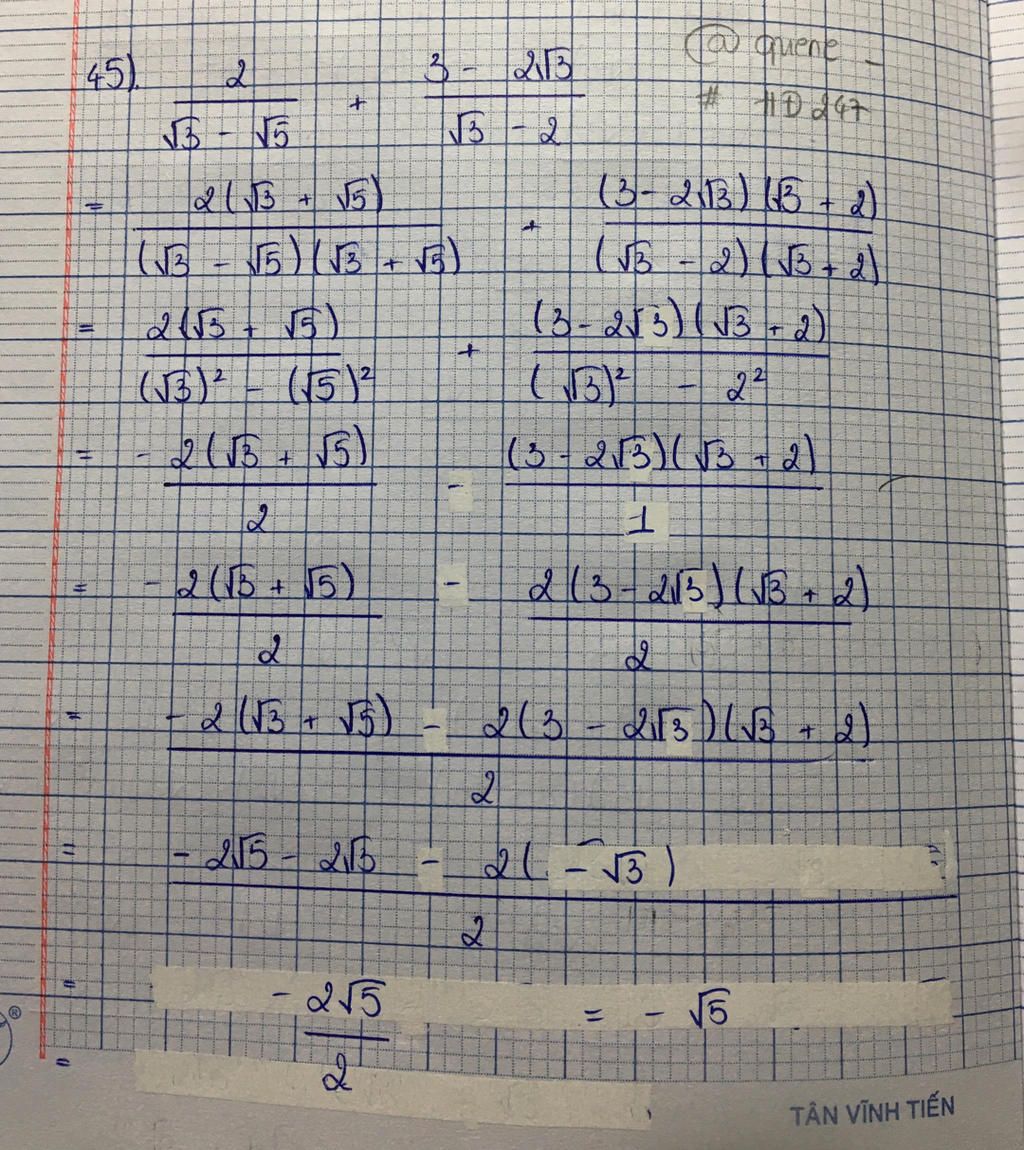 @ quene _
# HĐ 247
45). 2/(√3 - √5) + (3 - 2√3)/(√3 - 2)
= 2(√3 + √5)/((√3 - √5)(√3 + √5)) + (3 - 2√3)(√3 + 2)/((√3 - 2)(√3 + 2))
= 2(√3 + √5)/((√3)² - (√5)²) + (3 - 2√3)(√3 + 2)/((√3)² - 2²)
= - 2(√3 + √5)/2 - (3 - 2√3)(√3 + 2)/1
= - 2(√3 + √5)/2 - 2(3 - 2√3)(√3 + 2)/2
= (- 2(√3 + √5) - 2(3 - 2√3)(√3 + 2))/2
= (- 2√5 - 2√3 - 2( - √3))/2
= - 2√5/2 = - √5
=
®
TÂN VĨNH TIẾN